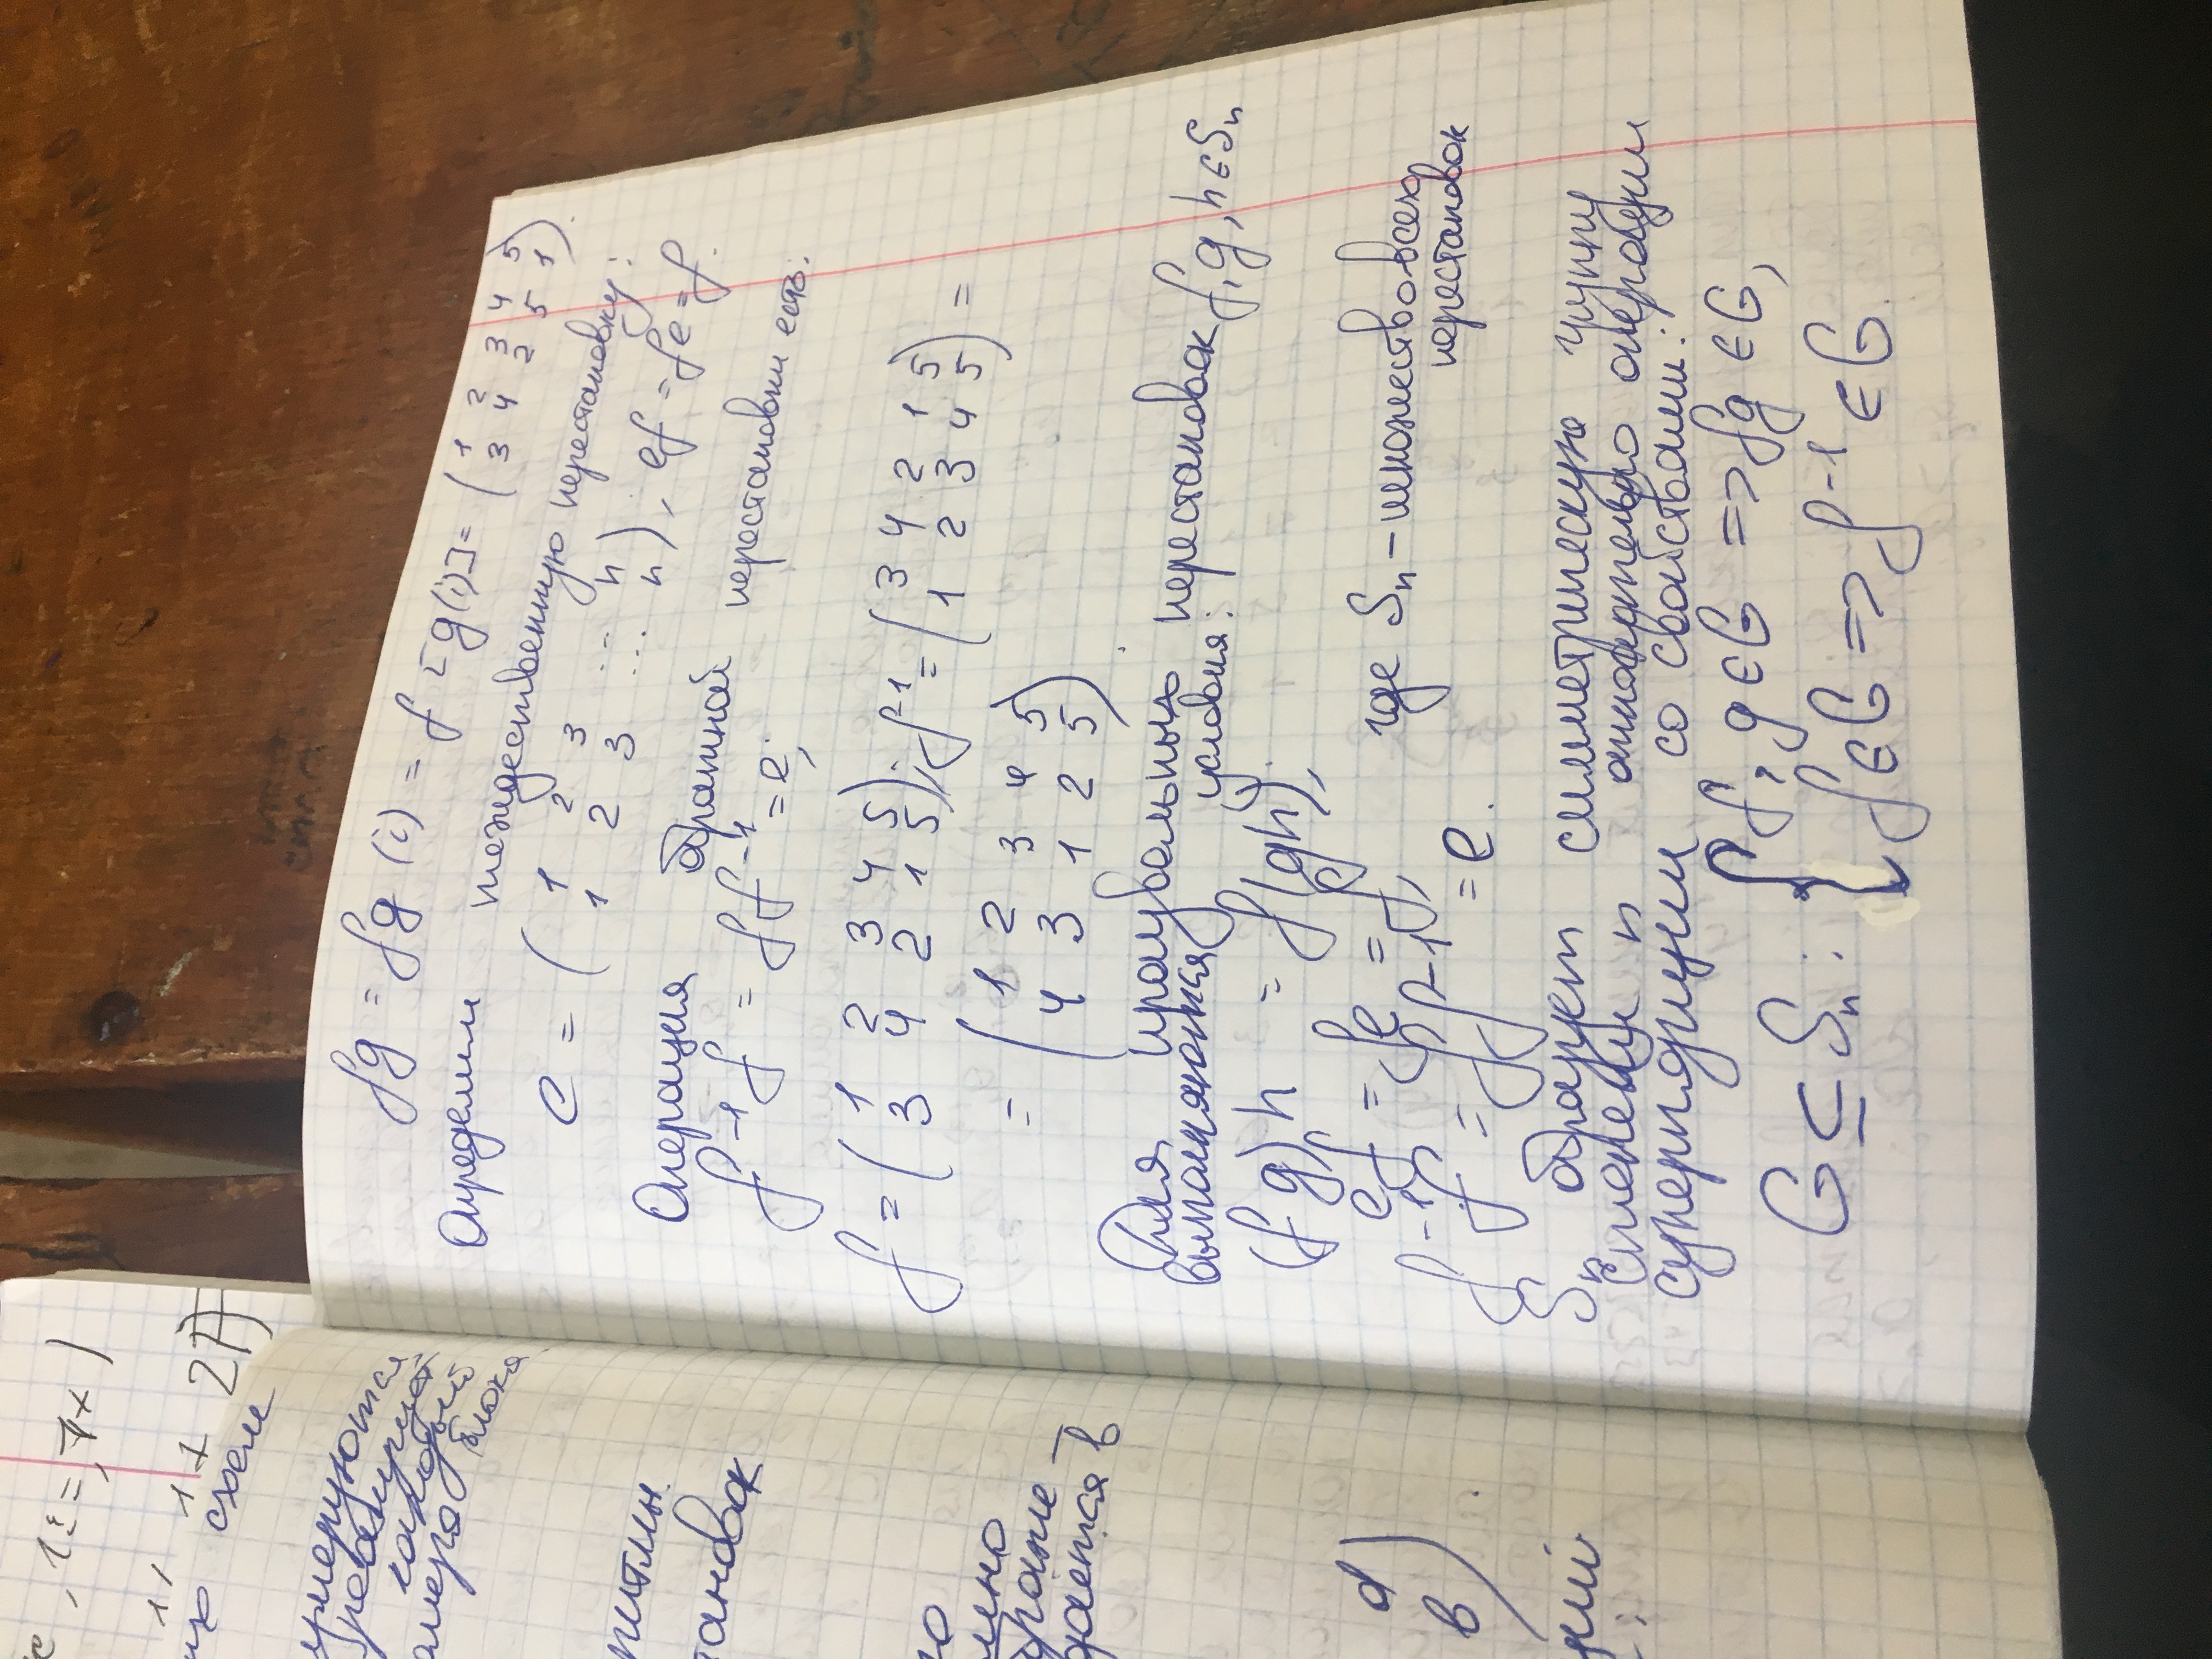 , 1ε = , 7x )
11 17 2
их схем
умеруются
реагирует
каждый
номера блока
ритмы.
тановок
но
лно
браже-
дается в
d
b ) .
ций
fg = fg (i) = f [g(i)] = ( 1 2 3 4 5
3 4 2 5 1 ).
Определим тождественную перестановку:
e = ( 1 2 3 ... n
1 2 3 ... n ); ef = fe = f.
Операция обратной перестановки есть:
f⁻¹f = ff⁻¹ = e;
f = ( 1 2 3 4 5
3 4 2 1 5 ); f⁻¹ = ( 3 4 2 1 5
1 2 3 4 5 ) =
= ( 1 2 3 4 5
4 3 1 2 5 ).
Для произвольных перестановок f, g, h ∈ Sₙ
выполняются условия:
(fg)h = f(gh);
ef = fe = f, где Sₙ – множество всех
перестановок
f⁻¹f = ff⁻¹ = e.
Sₙ образует симметрическую группу
степени n относительно операции
суперпозиции со свойствами:
G ⊆ Sₙ : { f, g ∈ G => fg ∈ G,
f ∈ G => f⁻¹ ∈ G.